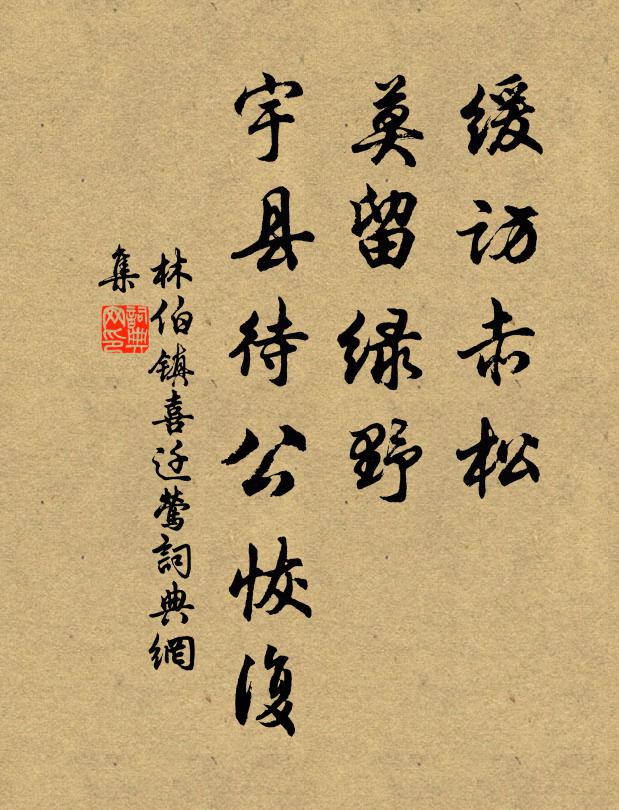 缓访赤松
莫留绿野
宇县待公恢复
林伯镇喜迁莺詞典網
集
詞典网印